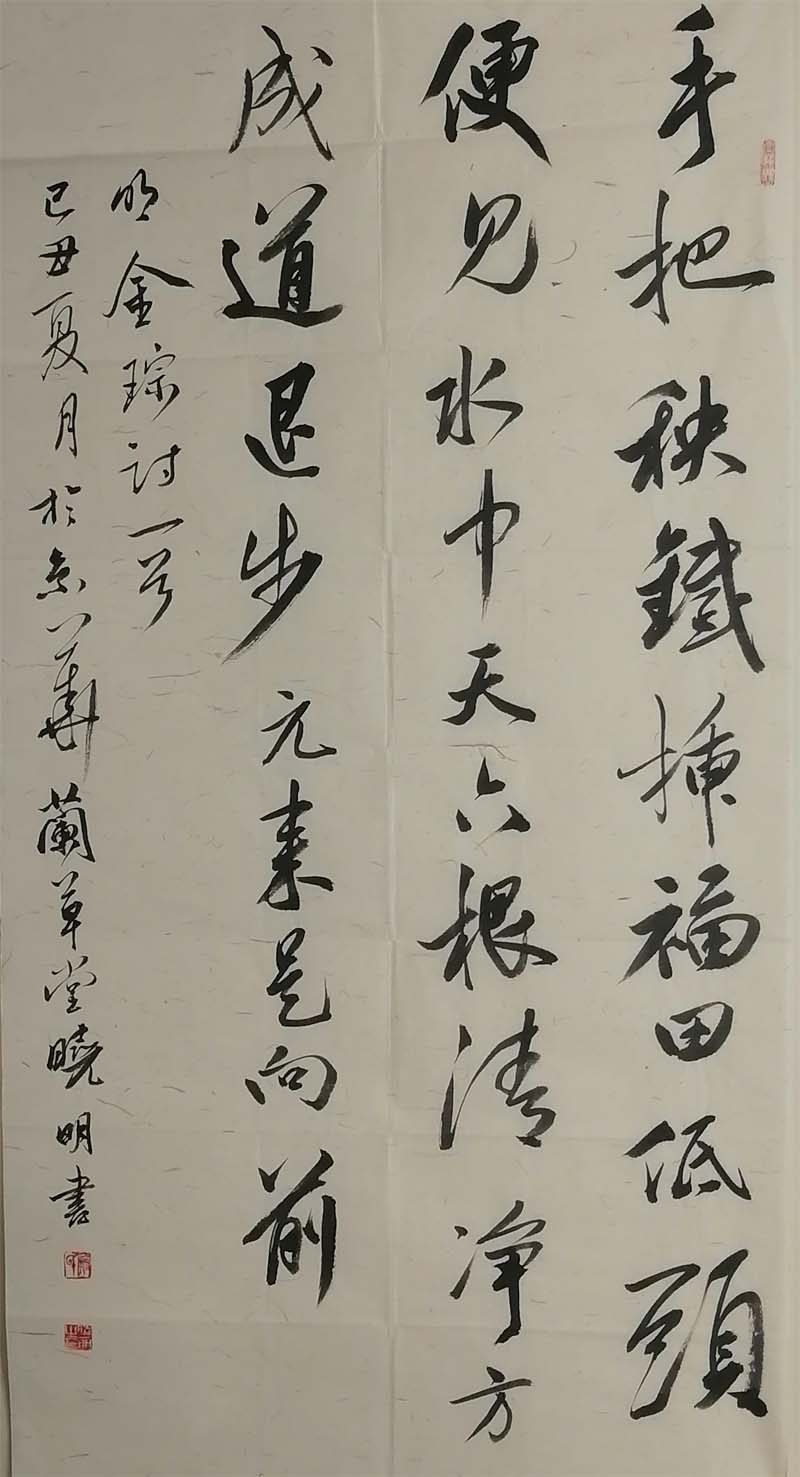 手把秧鍼插福田低頭
便見水中天六根清净方
成道退步元来是向前
明金琮詩一首
己丑夏月於京華蘭草堂曉明書